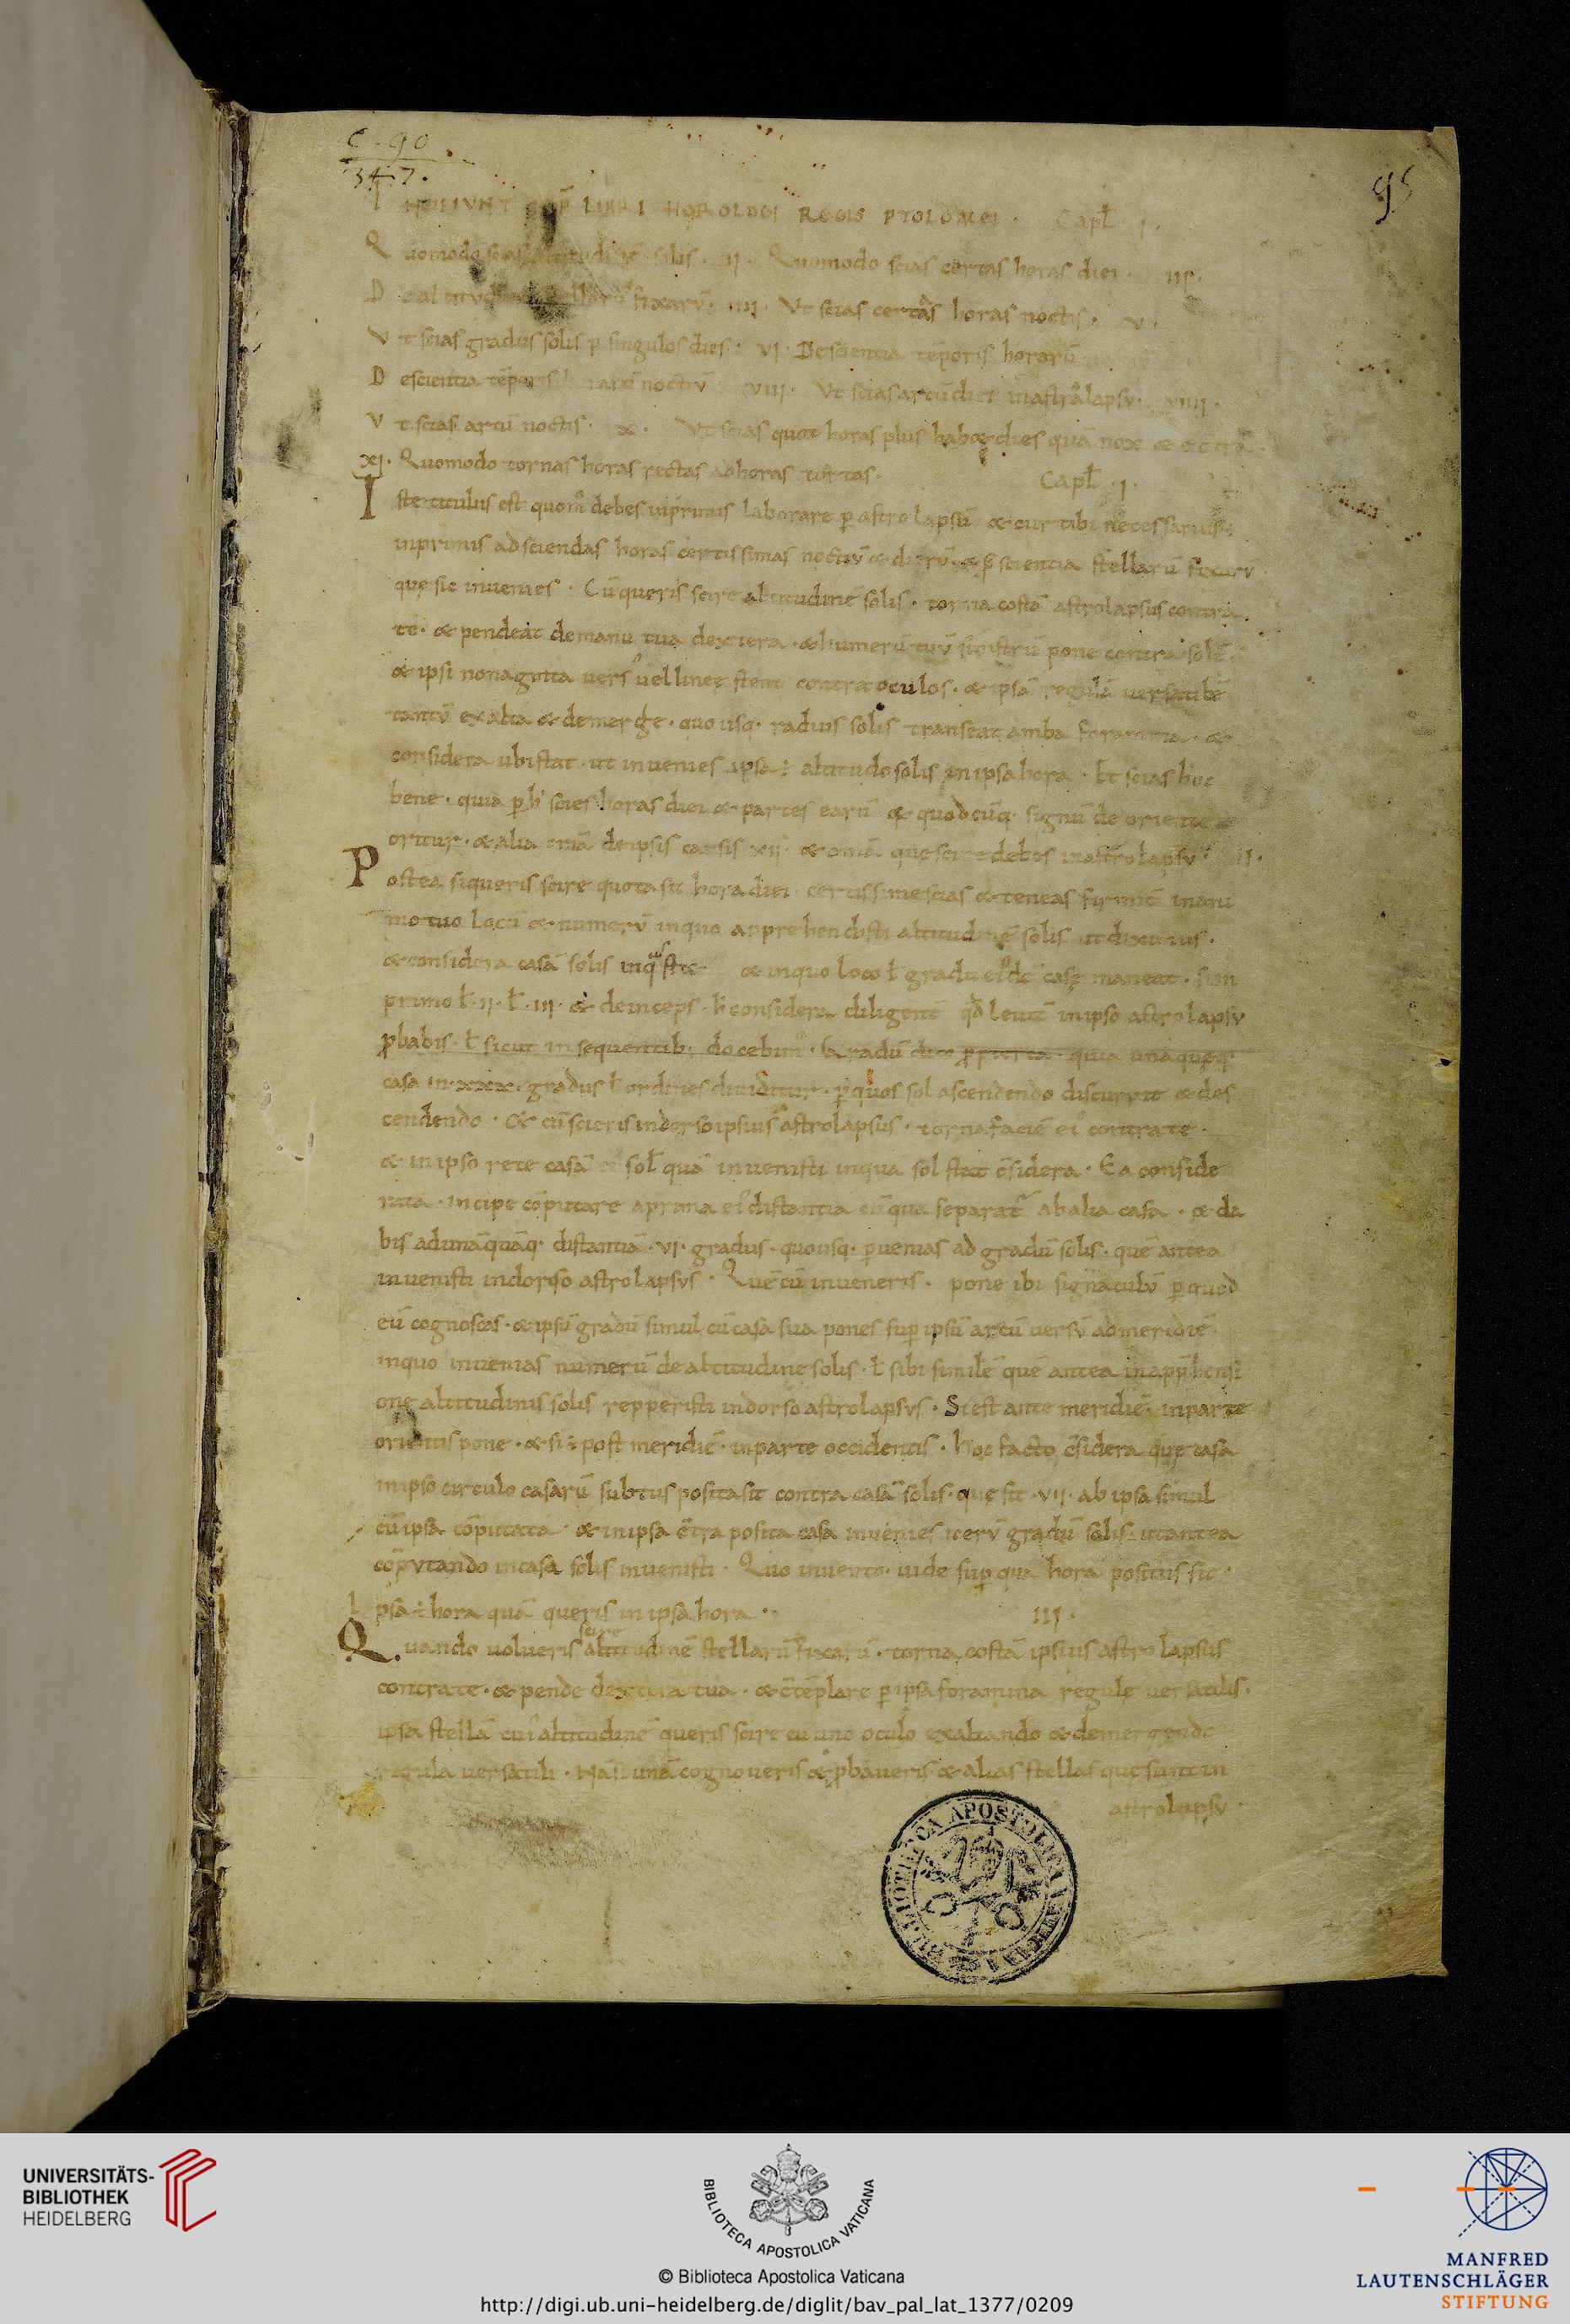 C. 90
347.
95
LIBRI HOROLOGI REGIS PTOLOMEI. Capł I.
Quomodo scias altitudinē solis. II. Quomodo scias certas horas diei. III.
De fixarū. IIII. Ut scias certas horas noctis. V.
Ut scias gradus solis p singulos dies. VI. De scientia tēporis horarū
De scientia tēporis horarū noctiū VIII. Ut scias artū diei in astrolapsu. VIIII.
Ut scias artū noctis. X. Ut scias quot horas plus habet dies quā nox et
XI. Quomodo tornas horas rectas ad horas tortas. Capł. I.
Iste titulus est quom̊ debes inprimis laborare p astrolapsū et cur tibi necessarius
inprimis ad sciendas horas certissimas noctiū et dierū et p scientia stellarū fixarū
que sic invenies. Cū queris scire altitudinē solis. torna costā astrolapsus contra
te. et pendeat de manu tua dextera. et humerū tuū sinistrū pone contra solē
et ipsi nonaginta vers' vel lineę stent contra oculos. et ipsā regulā versatilē
tantū exalta et demerge. quo usq. radius solis transeat amba foramina. et
considera ubi stat. ut invenies ipsa ÷ altitudo solis in ipsa hora. Et scias hoc
bene. quia p h' scies horas diei et partes earū et quodcūq. signū de oriente
oritur. et alia oīa de ipsis casis XII. et omā que scire debes in astrolapsu. II.
Postea si queris scire quota sit hora diei. certissime scias et teneas firmit in ani
mo tuo locū et numerū in quo apprehendisti altitudinē solis ut diximus.
et considera casā solis in qua stat et in quo loco ł gradu ei'dē casę maneat. sive in
primo ł. II. ł. III. et deinceps. h considera diligent qđ levit in ipso astrolapsu
pbabis. ł sicut in sequentib. docebim'. Gradū quia unaqueq.
casa in XXX. gradus ł ordines dividitur. p quos sol ascendendo discurrit et des
cendendo. Et cū scieris in dorso ipsius astrolapsus. torna faciē ei' contra te.
et in ipso rete casā sol quā invenisti in qua sol stat c̄sidera. Ea conside
rata. incipe cōputare a prima ei' distantia cū qua separat ab alia casa. et da
bis ad unāquāq. distantiā. VI. gradus. quousq. pvenias ad gradū solis. quē antea
invenisti in dorso astrolapsus. Quē cū inveneris. pone ibi signaculū p quod
eū cognoscas. et ipsū gradū simul cū casa sua pones sup ipsū artū versū ad meridiē
in quo invenias numerū de altitudine solis. ł sibi similē quē antea in apphensi
one altitudinis solis repperisti in dorso astrolapsus. Si est ante meridiē. in parte
orientis pone. et si ÷ post meridiē. in parte occidentis. Hoc facto c̄sidera quę casa
in ipso circulo casarū subtus posita sit contra casā solis. quę sit. VII. ab ipsa simul
cū ipsa cōputata. et in ipsa c̄tra posita casa invenies iterū gradū solis. ut antea
cōputando in casa solis invenisti. Quo invento. vide sup qua hora positus sit.
Ipsa ÷ hora quā queris in ipsa hora. III.
Quando volueris scire altitudinē stellarū fixarū. torna costā ipsius astrolapsus
contra te. et pende dextera tua. et c̄tēplare p ipsa foramina regule versatilis.
ipsā stellā cui' altitudinē queris scire cū uno oculo exaltando et demergendo
regula versatili. Nā si unā cognoveris et pbaveris et alias stellas que sunt in
astrolapsu
BIBLIOTECA APOSTOLICA VATICANA
UNIVERSITÄTS-
BIBLIOTHEK
HEIDELBERG
BIBLIOTECA APOSTOLICA VATICANA
© Biblioteca Apostolica Vaticana
http://digi.ub.uni-heidelberg.de/diglit/bav_pal_lat_1377/0209
MANFRED
LAUTENSCHLÄGER
STIFTUNG